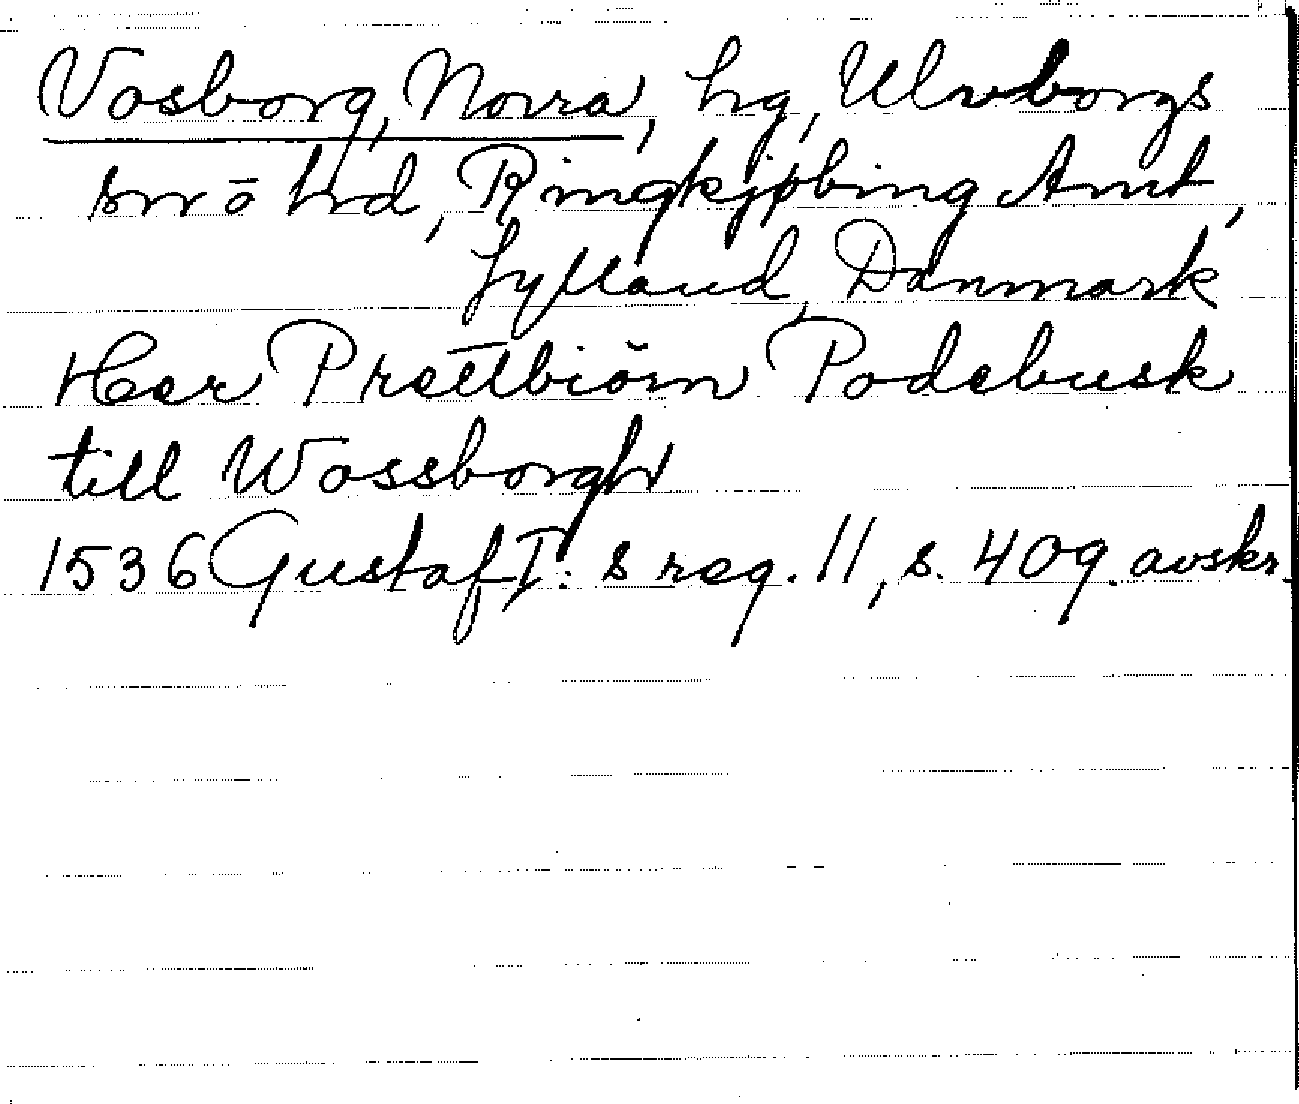 Vosborg, Norra, hg, Ulvborgs
sn o hd, Ringkjøbing Amt,
Jylland, Danmark
Her Preetbiörn Podebusk
till Wossborgh
1536 Gustaf I:s reg. 11, s. 409. avskr.